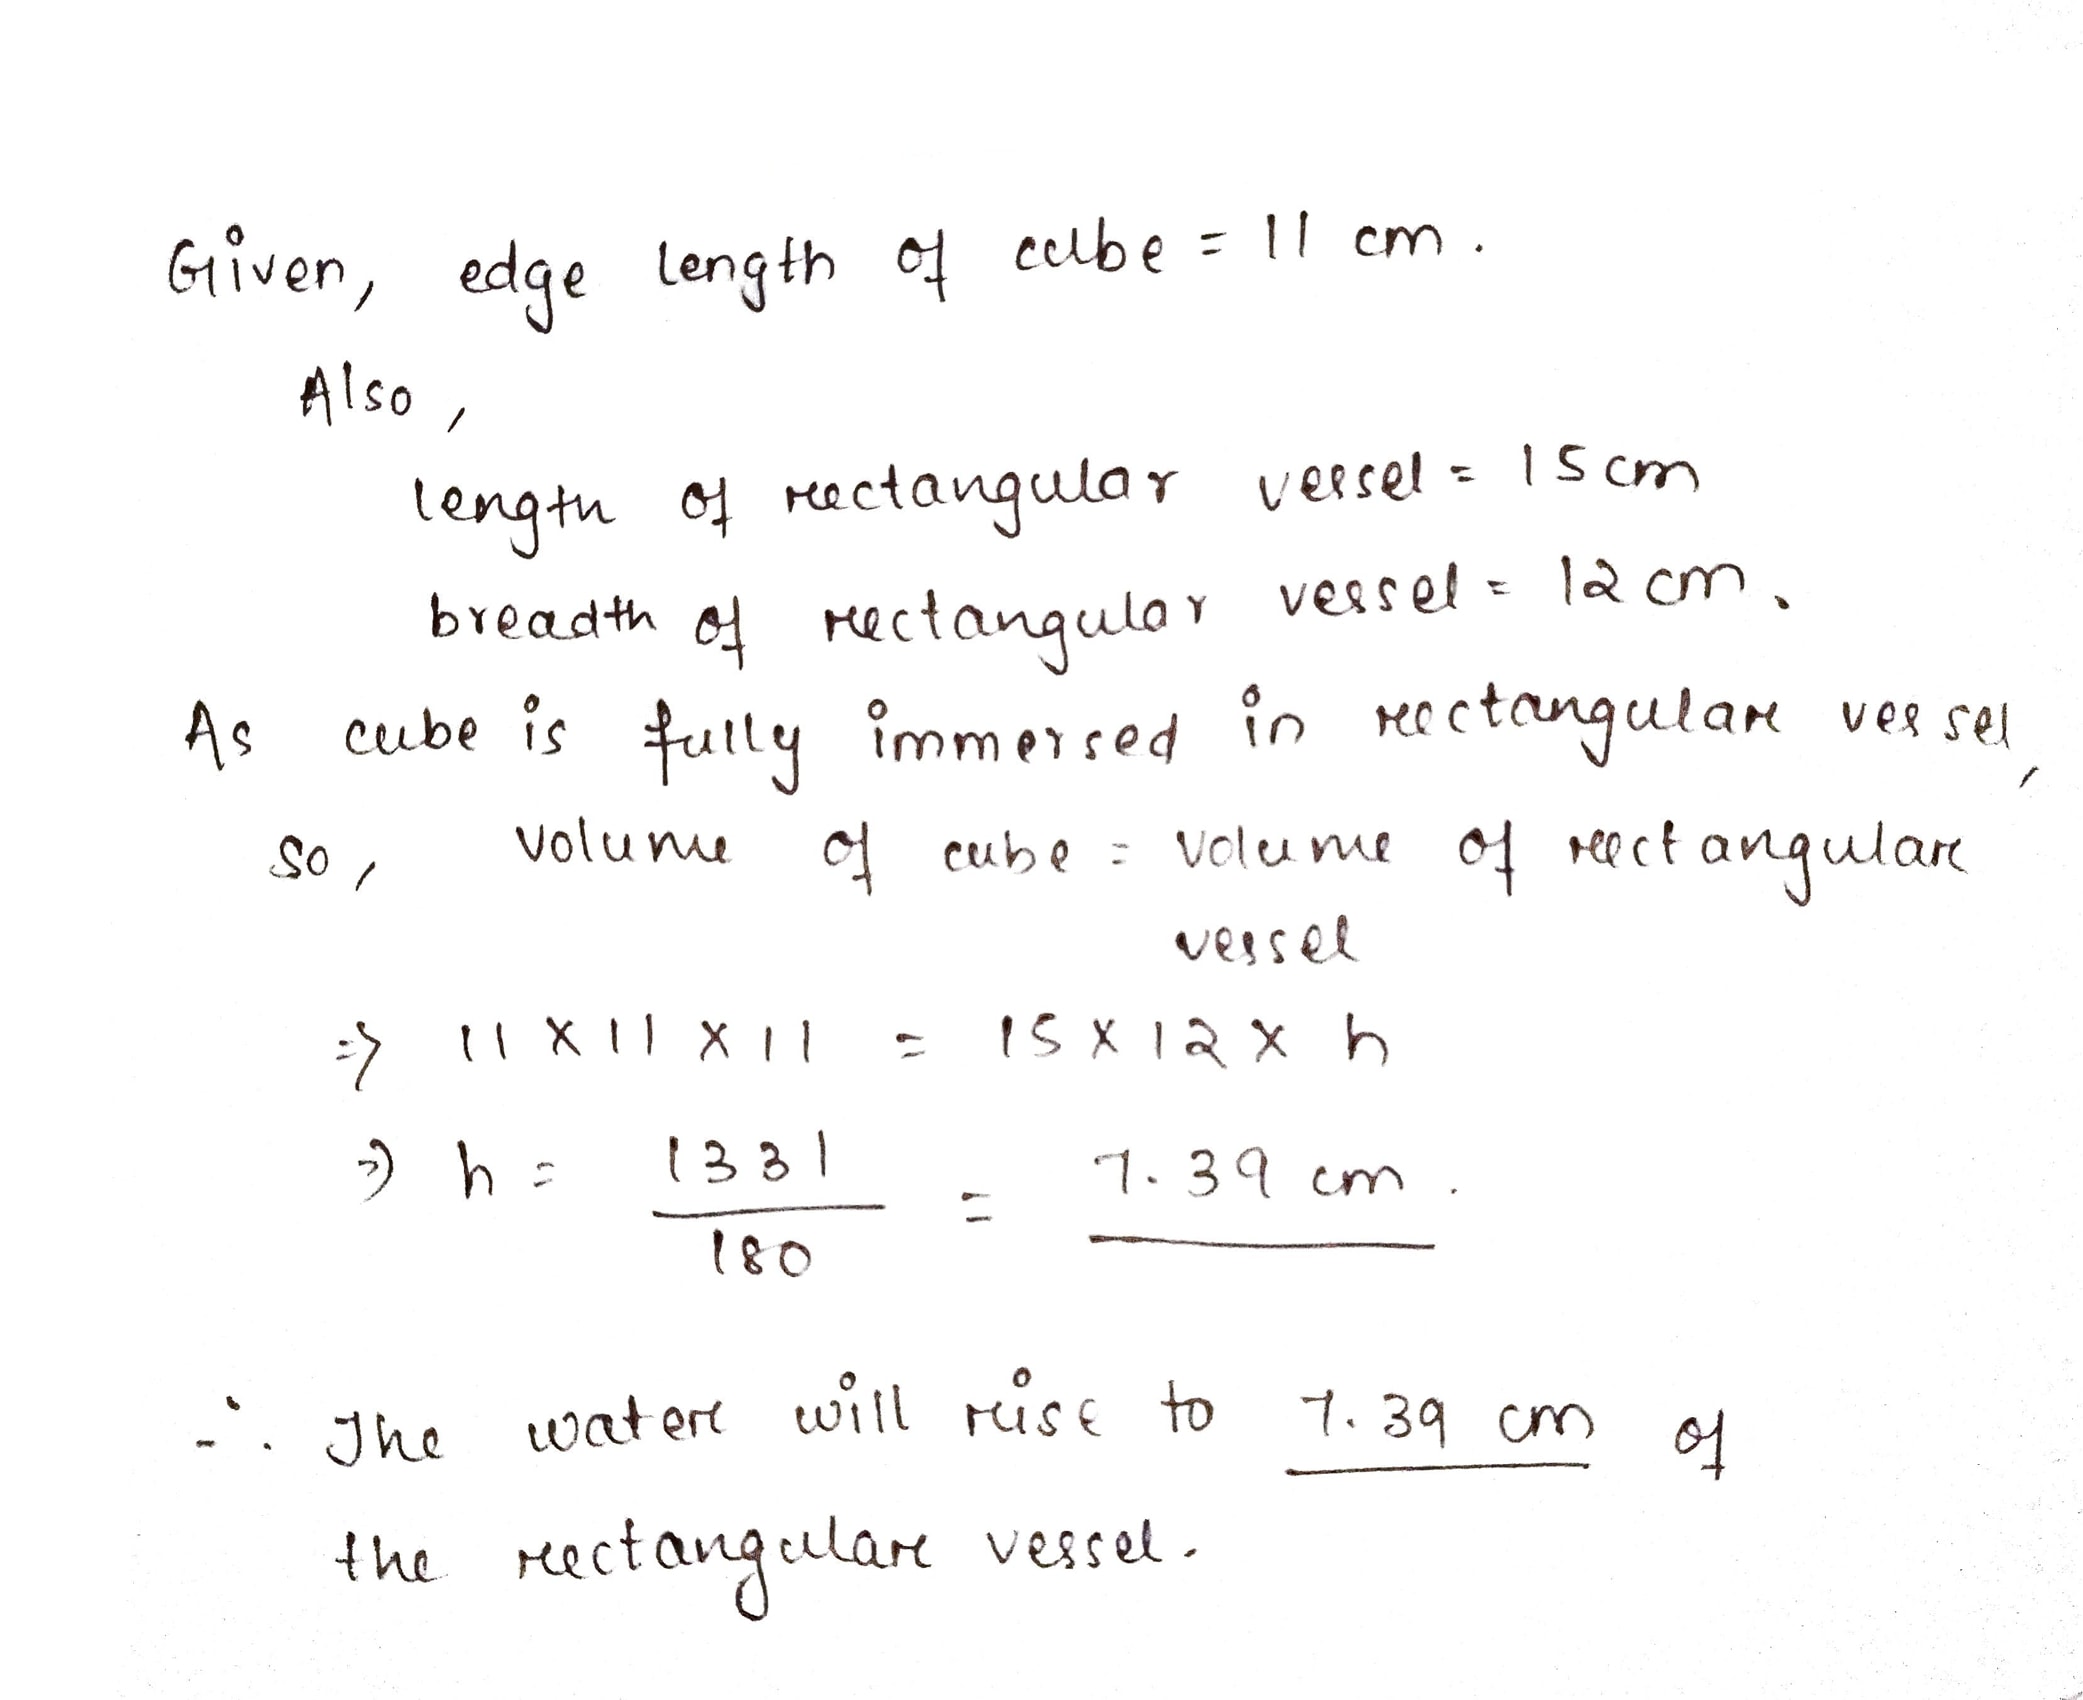 Given, edge length of cube = 11 cm.
Also,
length of rectangular vessel = 15 cm
breadth of rectangular vessel = 12 cm.
As cube is fully immersed in rectangular vessel,
so, volume of cube = volume of rectangular
vessel
⇒ 11 × 11 × 11 = 15 × 12 × h
⇒ h = 1331/180 = 7.39 cm.
∴ The water will rise to 7.39 cm of
the rectangular vessel.